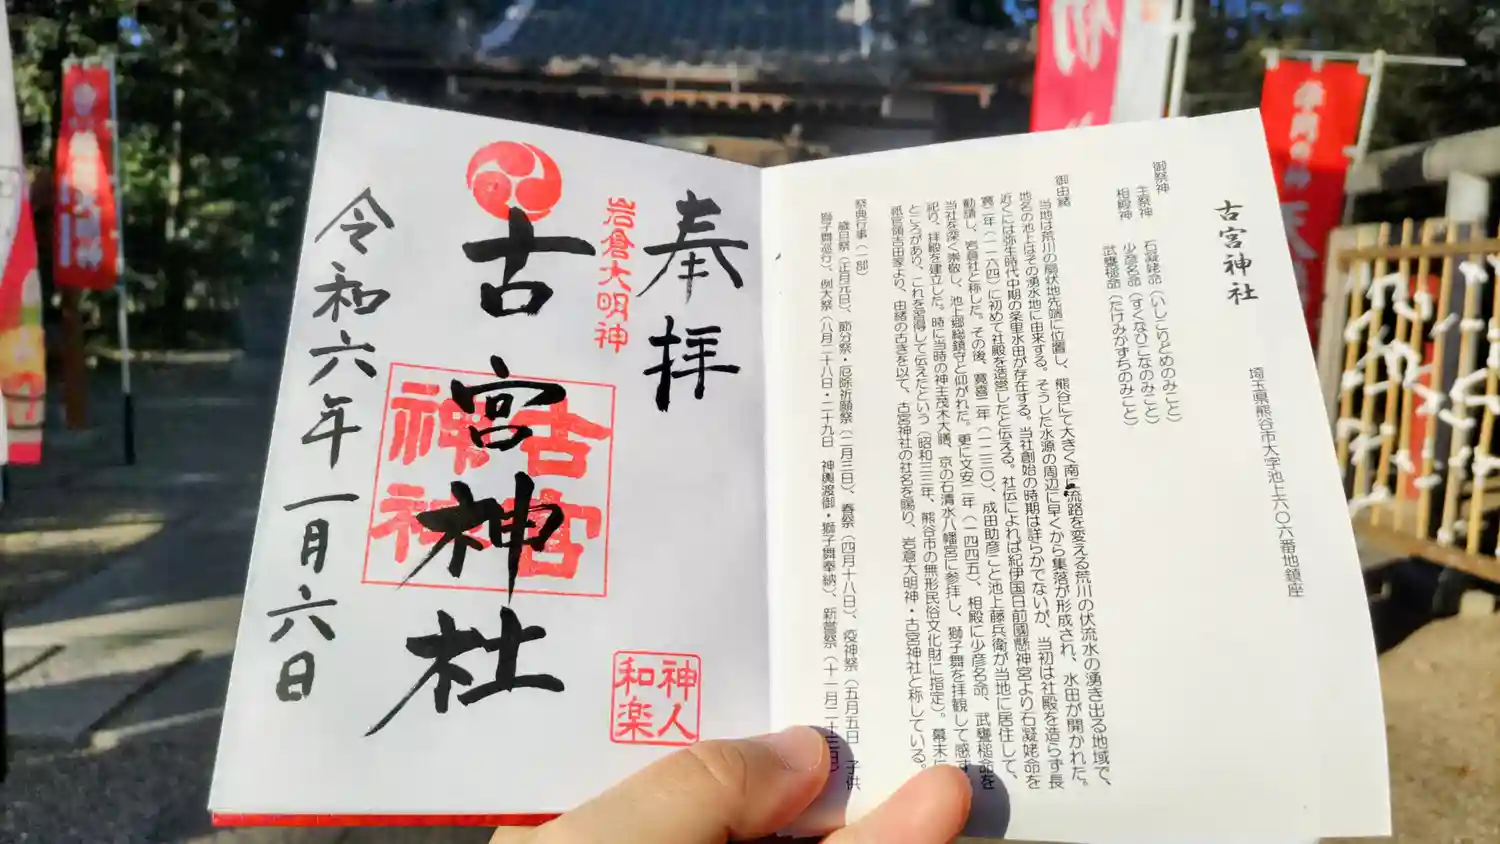 奉拝
岩倉大明神
古宮神社
古宮
神社
神人
和楽
令和六年一月六日
古宮神社
埼玉県熊谷市大字池上六〇六番地鎮座
御祭神
主祭神 石凝姥命（いしこりどめのみこと）
相殿神 少彦名命（すくなひこなのみこと）
武甕槌命（たけみかずちのみこと）
御由緒
当地は荒川の扇状地先端に位置し、熊谷にて大きく南に流路を変える荒川の伏流水の湧き出る地域で、
地名の池上はその湧水地に由来する。そうした水源の周辺に早くから集落が形成され、水田が開かれた。
近くには弥生時代中期の条里水田が存在する。当社創始の時期は詳らかでないが、当初は社殿を造らず長
寛二年（一一六四）に初めて社殿を造営したと伝える。社伝によれば紀伊国日前國懸神宮より石凝姥命を
勧請し、岩倉社と称した。その後、寛喜二年（一二三〇）、成田助彦こと池上藤兵衛が当地に居住して、
当社を深く崇敬し、池上郷総鎮守と仰がれた。更に文安二年（一四四五）、相殿に少彦名命、武甕槌命を
祀り、拝殿を建立した。時に当時の神主茂木大膳、京の石清水八幡宮に参拝し、獅子舞を拝観して感ず
ところがあり、これを習得して伝えたという（昭和三三年、熊谷市の無形民俗文化財に指定）。幕末に
祇官領吉田家より、由緒の古きを以て、古宮神社の社名を賜り、岩倉大明神・古宮神社と称している。
祭典行事（一部）
歳旦祭（正月元旦）、節分祭・厄除祈願祭（二月三日）、春祭（四月十八日）、疫神祭（五月五日 子供
獅子舞巡行）、例大祭（八月二十八日・二十九日 神輿渡御・獅子舞奉納）、新嘗祭（十一月二十三日）